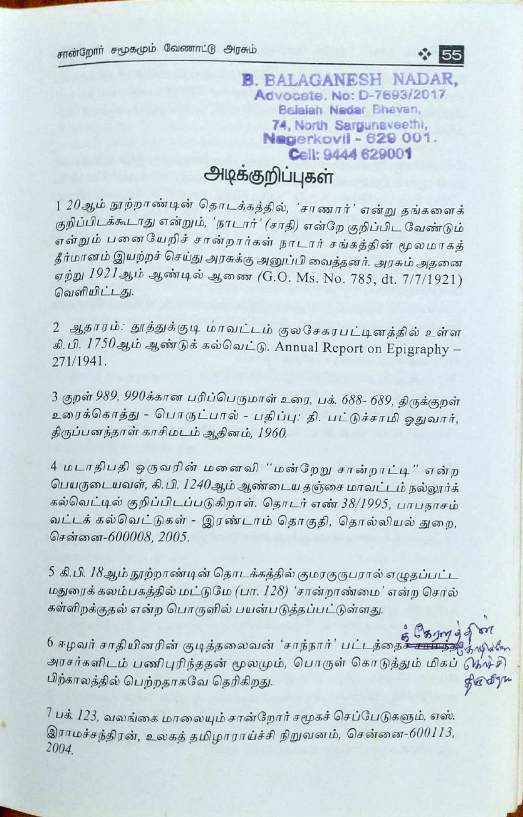 சான்றோர் சமூகமும் வேணாட்டு அரசும் ❖ 55
B. BALAGANESH NADAR,
Advocate. No: D-7693/2017
Balaiah Nadar Bhavan,
74, North Sargunaveethi,
Nagerkovil - 629 001.
Cell: 9444 629001
அடிக்குறிப்புகள்
1 20ஆம் நூற்றாண்டின் தொடக்கத்தில், ‘சாணார்’ என்று தங்களைக்
குறிப்பிடக்கூடாது என்றும், ‘நாடார்’ (சாதி) என்றே குறிப்பிட வேண்டும்
என்றும் பனையேறிச் சான்றோர்கள் நாடார் சங்கத்தின் மூலமாகத்
தீர்மானம் இயற்றச் செய்து அரசுக்கு அனுப்பி வைத்தனர். அரசும் அதனை
ஏற்று 1921ஆம் ஆண்டில் ஆணை (G.O. Ms. No. 785, dt. 7/7/1921)
வெளியிட்டது.
2 ஆதாரம்: தூத்துக்குடி மாவட்டம் குலசேகரபட்டினத்தில் உள்ள
கி.பி. 1750ஆம் ஆண்டுக் கல்வெட்டு. Annual Report on Epigraphy –
271/1941.
3 குறள் 989, 990க்கான பரிப்பெருமாள் உரை, பக். 688- 689, திருக்குறள்
உரைக்கொத்து - பொருட்பால் - பதிப்பு: தி. பட்டுச்சாமி ஓதுவார்,
திருப்பனந்தாள் காசிமடம் ஆதினம், 1960.
4 மடாதிபதி ஒருவரின் மனைவி “மன்றேறு சான்றாட்டி” என்ற
பெயருடையவள், கி.பி. 1240ஆம் ஆண்டைய தஞ்சை மாவட்டம் நல்லூர்க்
கல்வெட்டில் குறிப்பிடப்படுகிறாள். தொடர் எண் 38/1995, பாபநாசம்
வட்டக் கல்வெட்டுகள் - இரண்டாம் தொகுதி, தொல்லியல் துறை,
சென்னை-600008, 2005.
5 கி.பி. 18ஆம் நூற்றாண்டின் தொடக்கத்தில் குமரகுருபரால் எழுதப்பட்ட
மதுரைக் கலம்பகத்தில் மட்டுமே (பா. 128) ‘சான்றாண்மை’ என்ற சொல்
கள்ளிறக்குதல் என்ற பொருளில் பயன்படுத்தப்பட்டுள்ளது.
க் கேரளத்தின்
6 ஈழவர் சாதியினரின் குடித்தலைவன் ‘சாந்நார்’ பட்டத்தை
அரசர்களிடம் பணிபுரிந்ததன் மூலமும், பொருள் கொடுத்தும் மிகப் கொச்சி
பிற்காலத்தில் பெற்றதாகவே தெரிகிறது.
7 பக். 123, வலங்கை மாலையும் சான்றோர் சமூகச் செப்பேடுகளும், எஸ்.
இராமச்சந்திரன், உலகத் தமிழாராய்ச்சி நிறுவனம், சென்னை-600113,
2004.